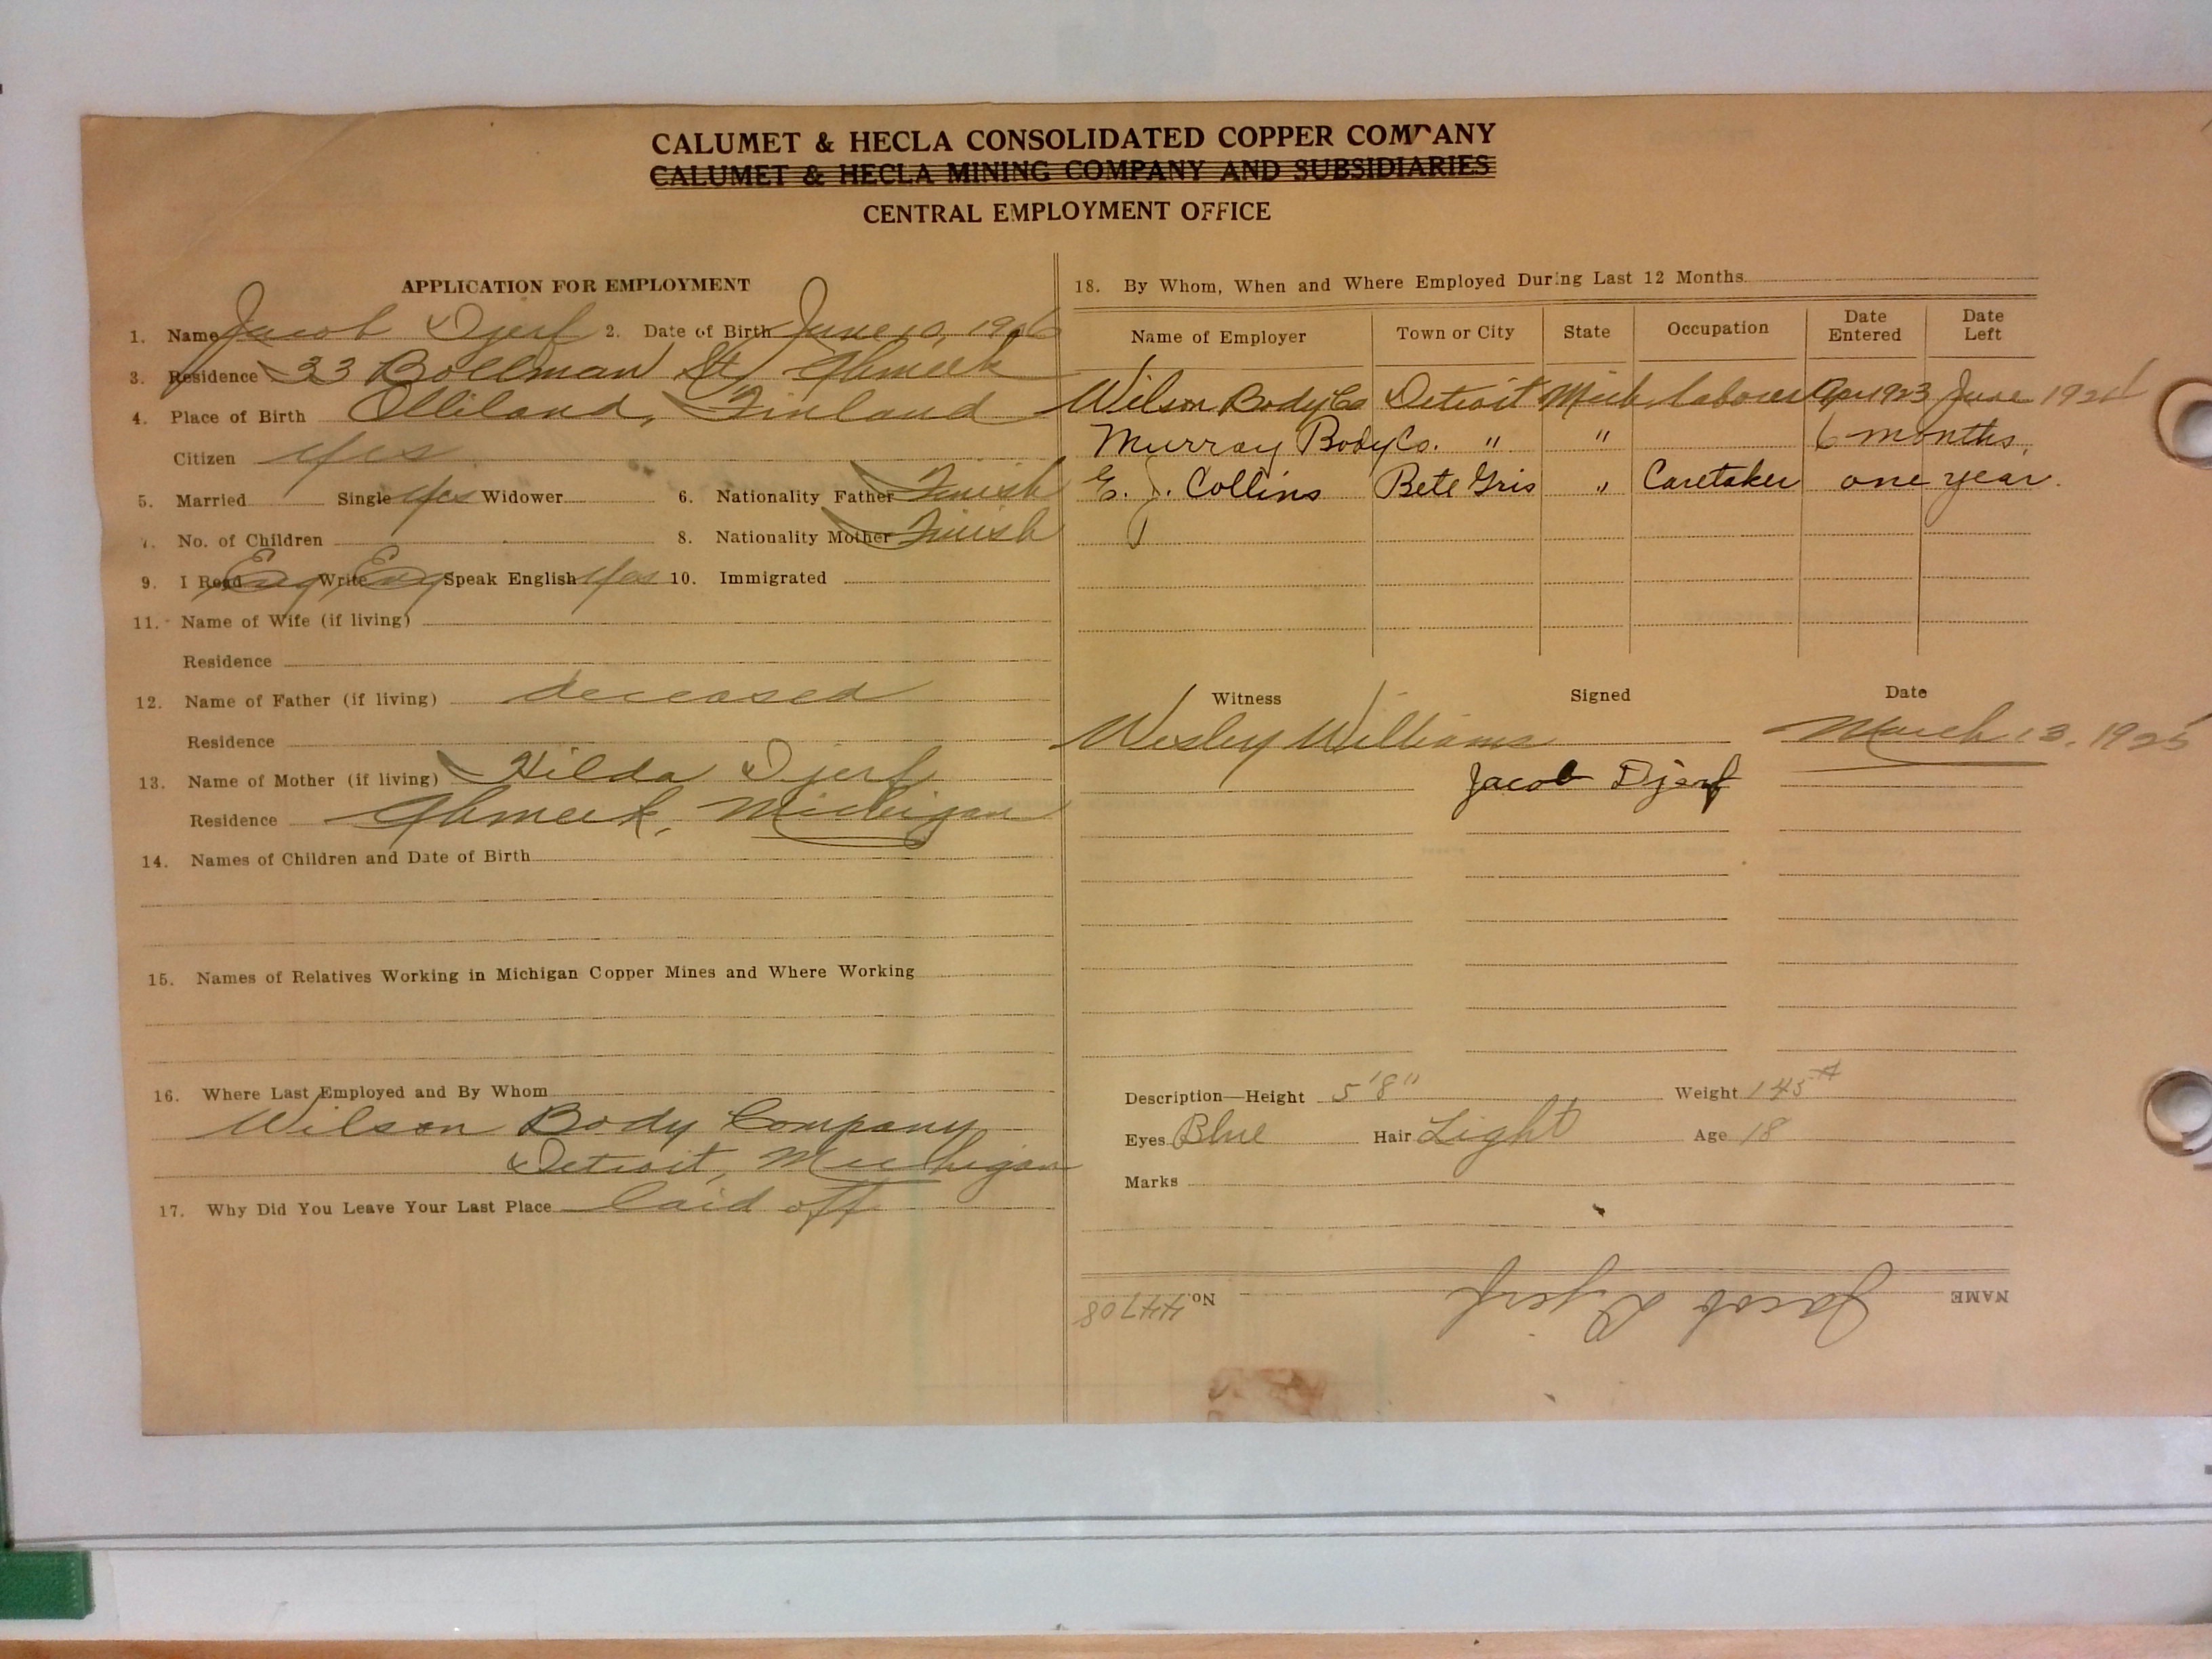 CALUMET & HECLA CONSOLIDATED COPPER COMPANY
CALUMET & HECLA MINING COMPANY AND SUBSIDIARIES
CENTRAL EMPLOYMENT OFFICE
APPLICATION FOR EMPLOYMENT
1. Name Jacob Djerf 2. Date of Birth June 10, 1906
3. Residence 33 Bollman St, Ahmeek
4. Place of Birth Finland
Citizen Yes
5. Married Single Yes Widower 6. Nationality Father Finish
7. No. of Children 8. Nationality Mother Finish
9. I Read Eng Write Eng Speak English Yes 10. Immigrated
11. Name of Wife (if living)
Residence
12. Name of Father (if living) deceased
Residence
13. Name of Mother (if living) Hilda Djerf
Residence Ahmeek, Michigan
14. Names of Children and Date of Birth
15. Names of Relatives Working in Michigan Copper Mines and Where Working
16. Where Last Employed and By Whom
Wilson Body Company
Detroit, Michigan
17. Why Did You Leave Your Last Place laid off
18. By Whom, When and Where Employed During Last 12 Months
Name of Employer Town or City State Occupation Date Entered Date Left
Wilson Body Co Detroit Mich laborer Apr 1923 June 1924
Murray Body Co. " " 6 months.
E. J. Collins Bete Gris " Caretaker one year.
Witness Signed Date
Wesley Williams March 13, 1925
Jacob Djerf
Description—Height 5'8" Weight 145#
Eyes Blue Hair Light Age 18
Marks
NAME Jacob Djerf No. 44708